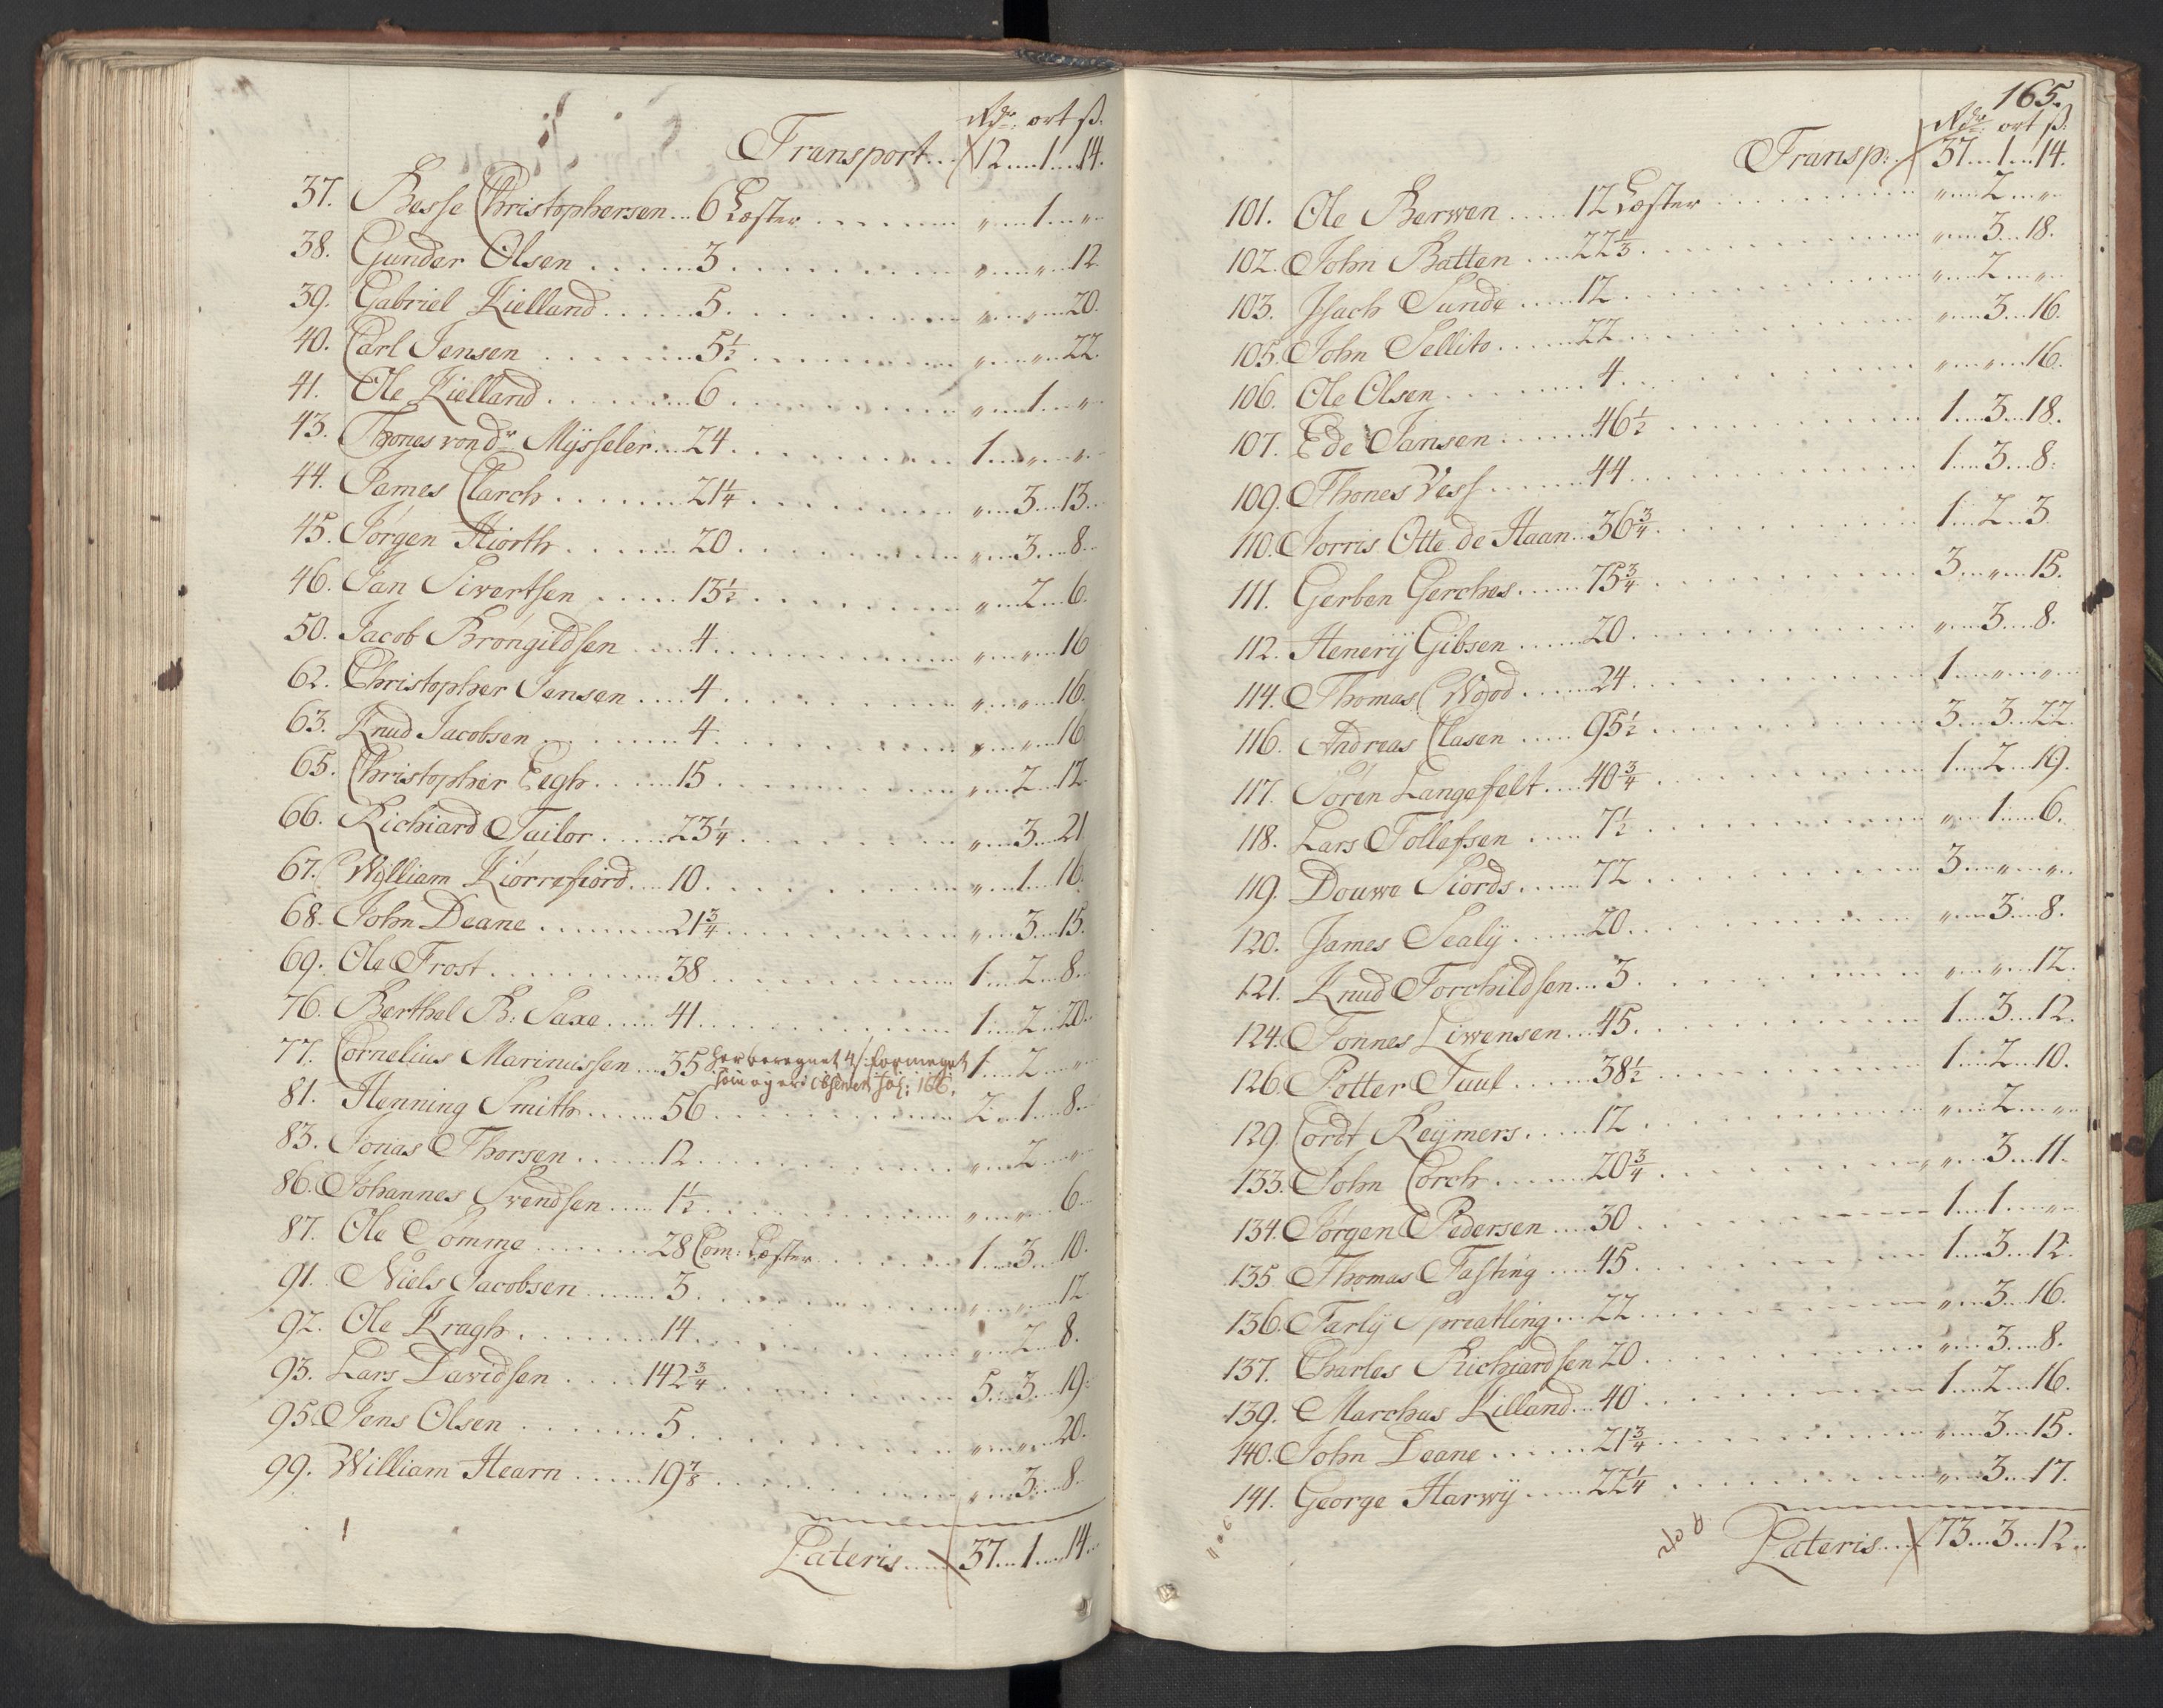 Rdr: ort ß.
Transport... 12....1....14.
37. Besse Christophersen... 6 Læster ....... "....1...."
38. Gunder Olsen ...... 3 ....... "...."....12.
39. Gabriel Kielland ...... 5 ....... "...."....20.
40. Carl Jensen ...... 5½ ....... "...."....22.
41. Ole Kielland ...... 6 ....... "....1...."
43. Thones von dr Mÿsseler... 24 ....... 1...."...."
44. James Clarch ...... 21¼ ....... "....3....13.
45. Jørgen Hiorth ...... 20 ....... "....3....8.
46. Jan Sivertsen ...... 13½ ....... "....2....6.
50. Jacob Brøngildsen ...... 4 ....... "...."....16
62. Christopher Jensen .... 4 ....... "...."....16.
63. Knud Jacobsen ...... 4 ....... "...."....16
65. Christopher Eegh ..... 15 ....... "....2....12.
66. Richiard Tailor ..... 23¼ ....... "....3....21
67. William Kiørrefiord.... 10 ....... "....1....16.
68. John Deane ....... 21¾ ....... "....3....15.
69. Ole Frost ......... 38 ....... 1....2....8.
76. Berthel B: Saxe ..... 41 ....... 1....2....20.
77. Cornelius Marinussen ... 35 her beregnet 4 ß: formeget 1....2...."
som og er fol: 166.
81. Henning Smith ..... 56 ....... 2....1....8.
83. Jonas Thorsen ..... 12 ....... "....2...."
86. Johannes Svendsen .... 1½ ....... "...."....6.
87. Ole Somme ....... 28 Com: Læster ....... 1....3....10.
91. Niels Jacobsen ...... 3 ....... "...."....12
92. Ole Kragh ...... 14 ....... "....2....8.
93. Lars Davidsen .... 142¾ ....... 5....3....19.
95. Jens Olsen ...... 5 ....... "...."....20.
99. William Hearn ..... 19⅞ ....... "....3....8.
Lateris..... 37....1....14.
165.
Rdr: ort ß:
Transp: 37....1....14.
101. Ole Berwen ..... 12 Læster ....... "....2...."
102. John Batten .... 22⅓ ....... "....3....18.
103. Isach Sunde ..... 12 ....... "....2...."
105. John Sellito ..... 22 ....... "....3....16.
106. Ole Olsen ...... 4 ....... "...."....16.
107. Ede Jansen ...... 46½ ....... 1....3....18.
109. Thones Vess ...... 44 ....... 1....3....8.
110. Jorris Otte de Haan.. 36¾ ....... 1....2....3.
111. Gerben Gerches ..... 75¾ ....... 3...."....15.
112. Henerÿ Gibsen ..... 20 ....... "....3....8.
114. Thomas Wood ..... 24 ....... 1...."...."
116. Andreas Clasen ..... 95½ ....... 3....3....22.
117. Søren Langefelt .... 40¾ ....... 1....2....19.
118. Lars Tollefsen .... 7½ ....... "....1....6.
119. Douwe Siords ..... 72 ....... 3...."...."
120. James Sealÿ ..... 20 ....... "....3....8.
121. Knud Torchildsen... 3 ....... "...."....12.
124. Tonnes Liwensen... 45 ....... 1....3....12.
126. Potter Juul ...... 38½ ....... 1....2....10.
129. Cordt Reÿmers ..... 12 ....... "....2...."
133. John Corch ...... 20¾ ....... "....3....11.
134. Jørgen Pedersen .... 30 ....... 1....1...."
135 Thomas Fasting .... 45 ....... 1....3....12.
136. Tarlÿ Spreatling... 22 ....... "....3....16.
137. Charles Richiardsen 20 ....... "....3....8.
139. Marchus Killand... 40 ....... 1....2....16.
140. John Deane ...... 21¾ ....... "....3....15.
141. George Harwÿ ..... 22¼ ....... "....3....17.
Lateris.... 73....3....12..